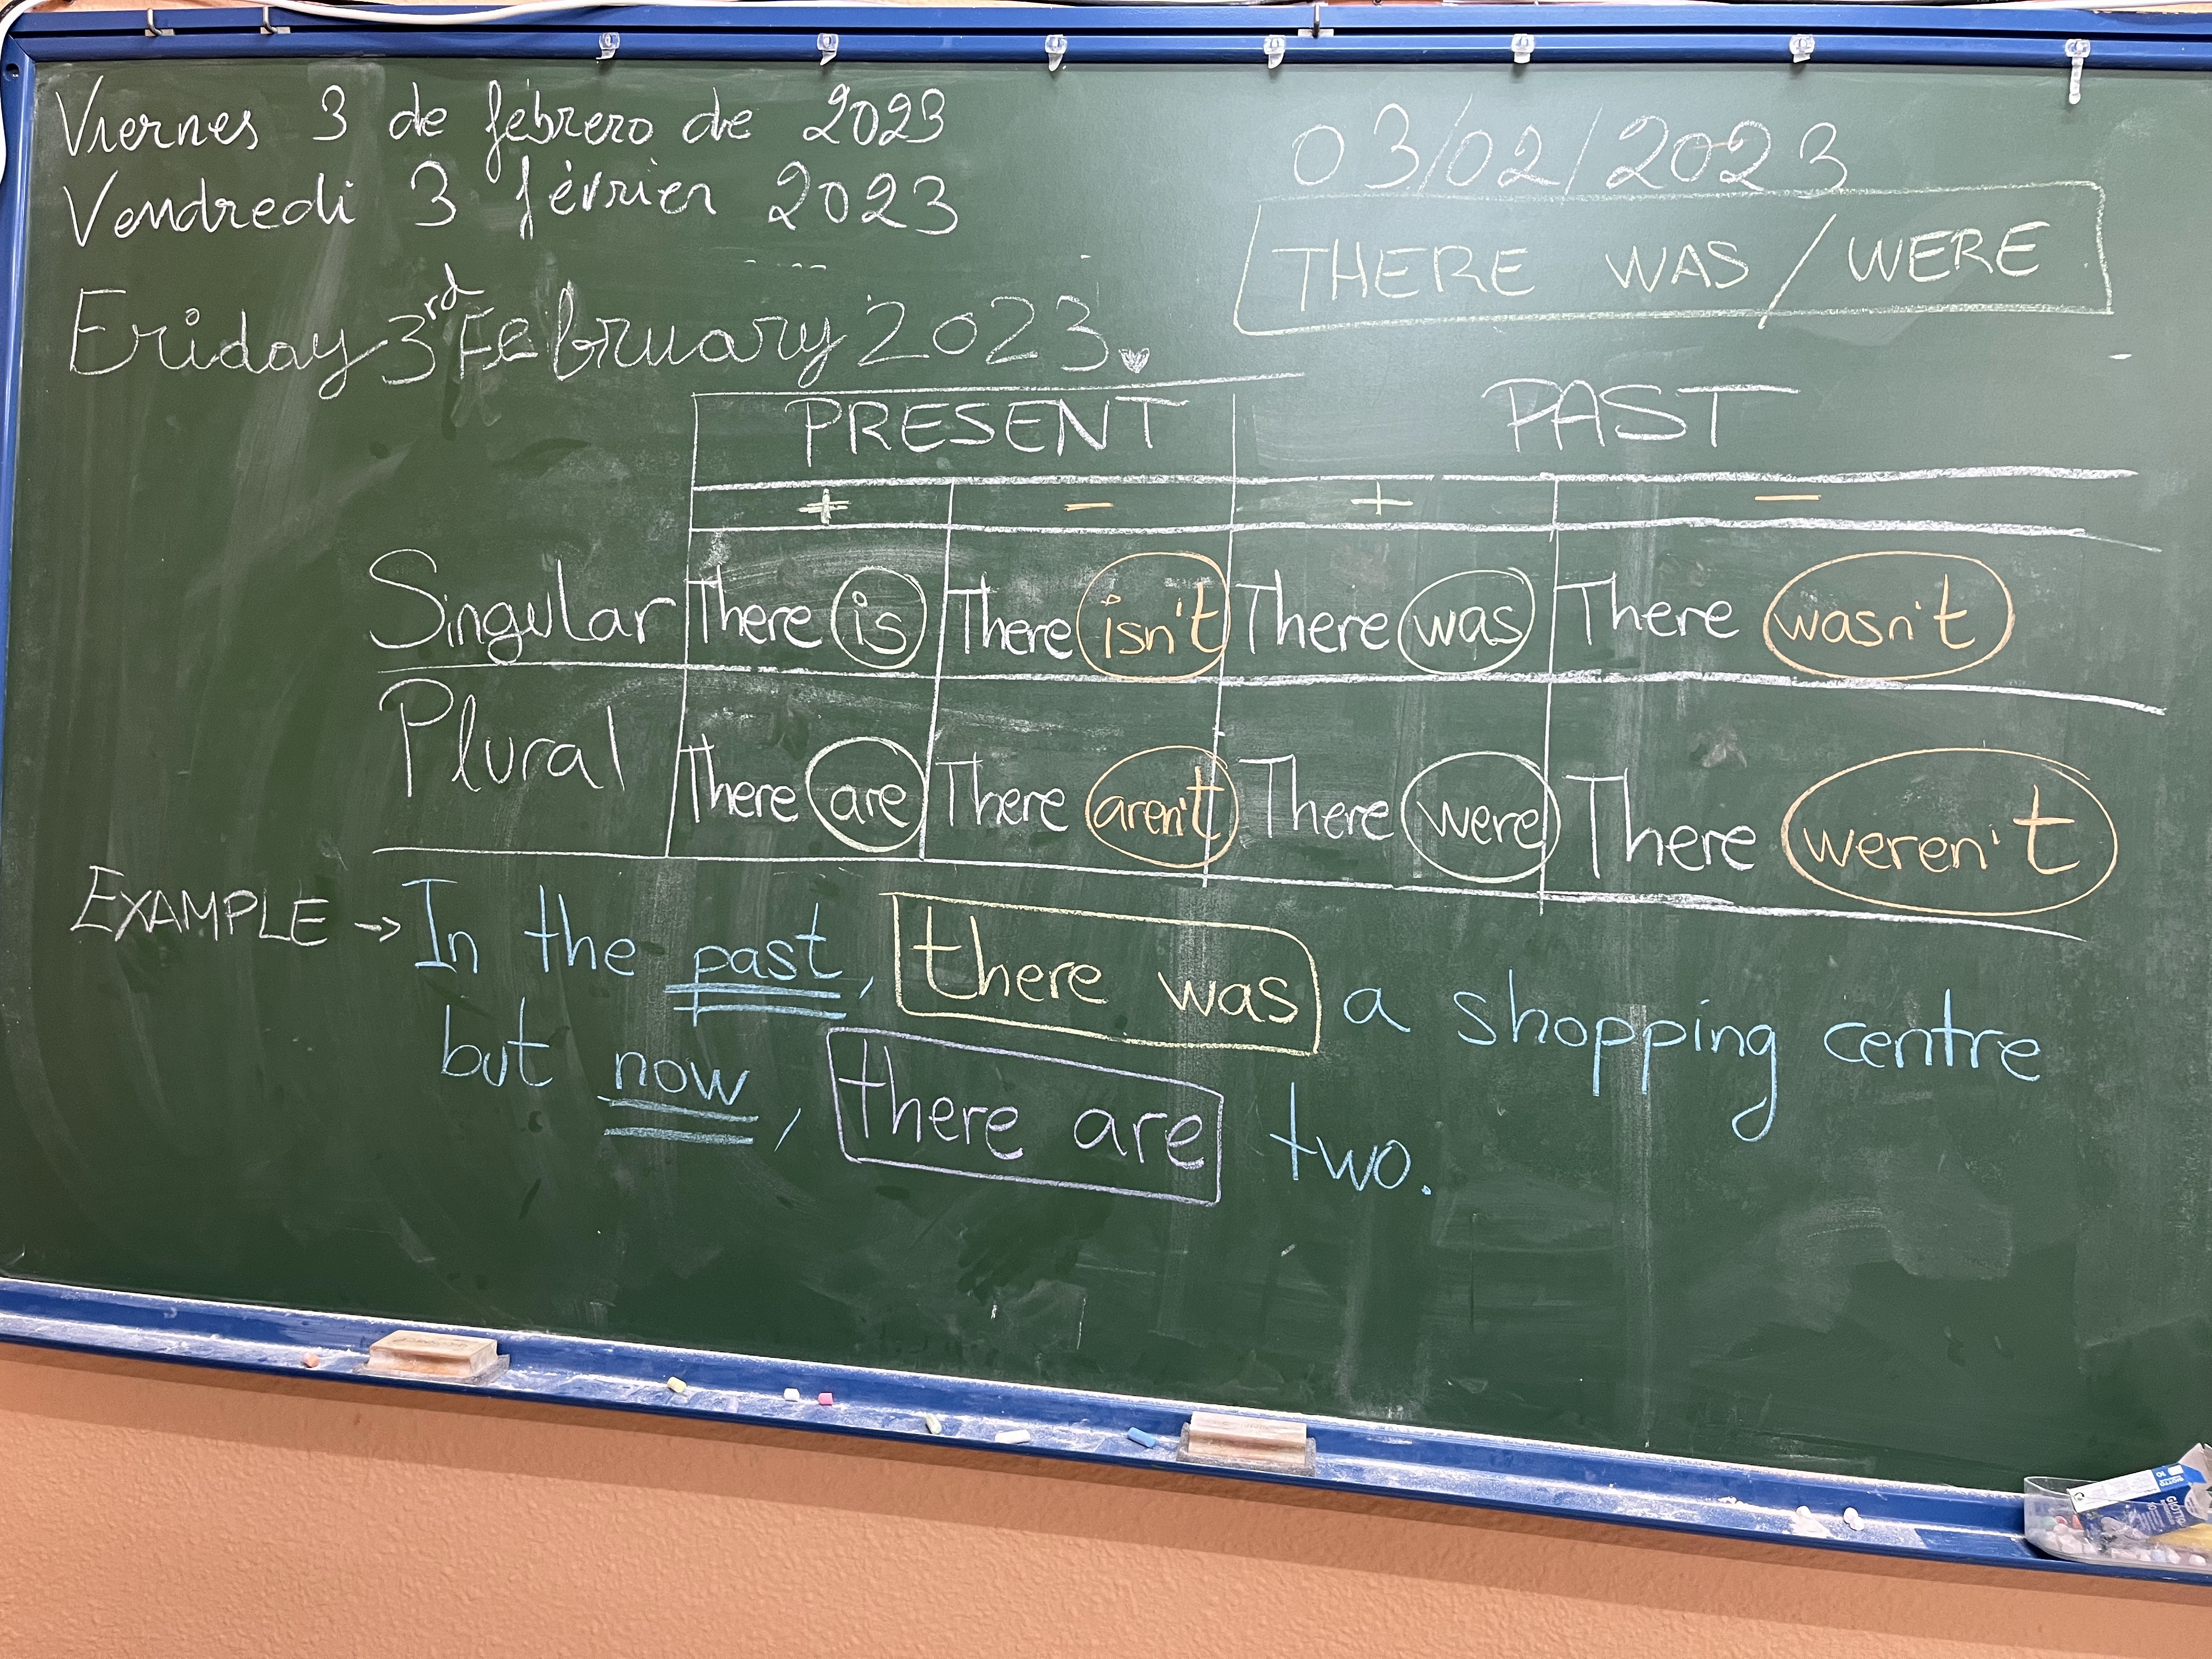 Viernes 3 de febrero de 2023
Vendredi 3 février 2023
Friday 3rd February 2023
03/02/2023
THERE WAS / WERE
PRESENT PAST
+ - + -
Singular There is There isn't There was There wasn't
Plural There are There aren't There were There weren't
EXAMPLE → In the past, there was a shopping centre
but now, there are two.
GIOTTO